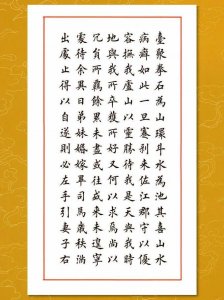 臺聚拳石為山環斗水為池其喜山水
病癖如此一旦蹇剥来佐江郡守以優
容撫我廬山以靈勝待我是天與我時
地與我所卒獲所好又何以求為尚以
冗員所羈餘累未盡或往或来未遑寧
處待余異日弟妹婚嫁畢司馬歲秩滿
出處止得以自遂則必左手引妻子右